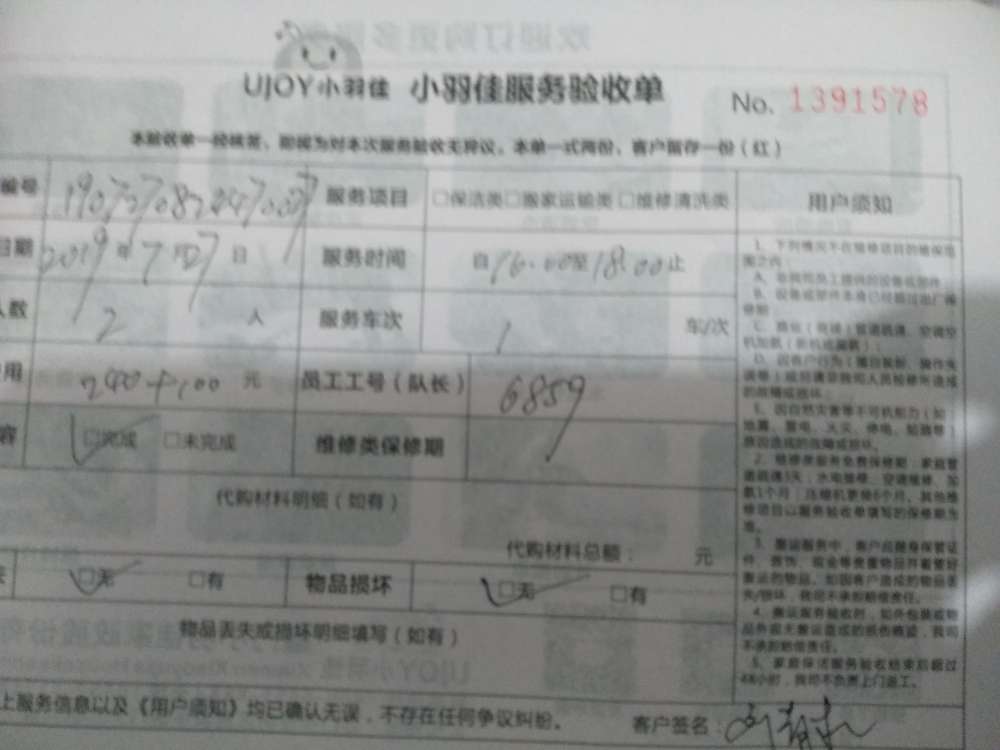 UJOY小羽佳 小羽佳服务验收单 No. 1391578
本验收单一经核签，即视为对本次服务验收无异议。本单一式两份，客户留存一份（红）
编号 服务项目 □保洁类□搬家运输类□维修清洗类 用户须知
日期 2019年7月27日 服务时间 自16:00至18:00止
人数 2 人 服务车次 1 车/次
用 240+100 元 员工工号（队长） 6859
容 □完成 □未完成 维修类保修期
代购材料明细（如有）
代购材料总额： 元
□无 □有 物品损坏 □无 □有
物品丢失或损坏明细填写（如有）
上服务信息以及《用户须知》均已确认无误，不存在任何争议纠纷。 客户签名：
1、下列情况不在维修项目的维保范围之内：
A、非我司员工提供的设备或部件
D、因客户行为（擅自装拆、操作失误等）或另请非我司人员检修所造成的故障或损坏；
E、因自然灾害等不可抗能力（如：地震、雷电、火灾、停电、短路等）原因造成的故障或损坏。
3、搬运服务中，客户应随身保管证件、首饰、现金等贵重物品并看管好搬运的物品。如因客户造成的物品丢失/损坏，我司不承担赔偿责任。
4、搬运服务验收时，如外包装或物品外观无搬运造成的损伤痕迹，我司不承担赔偿责任。
5、家庭保洁服务验收结束后超过48小时，我司不负责上门返工。